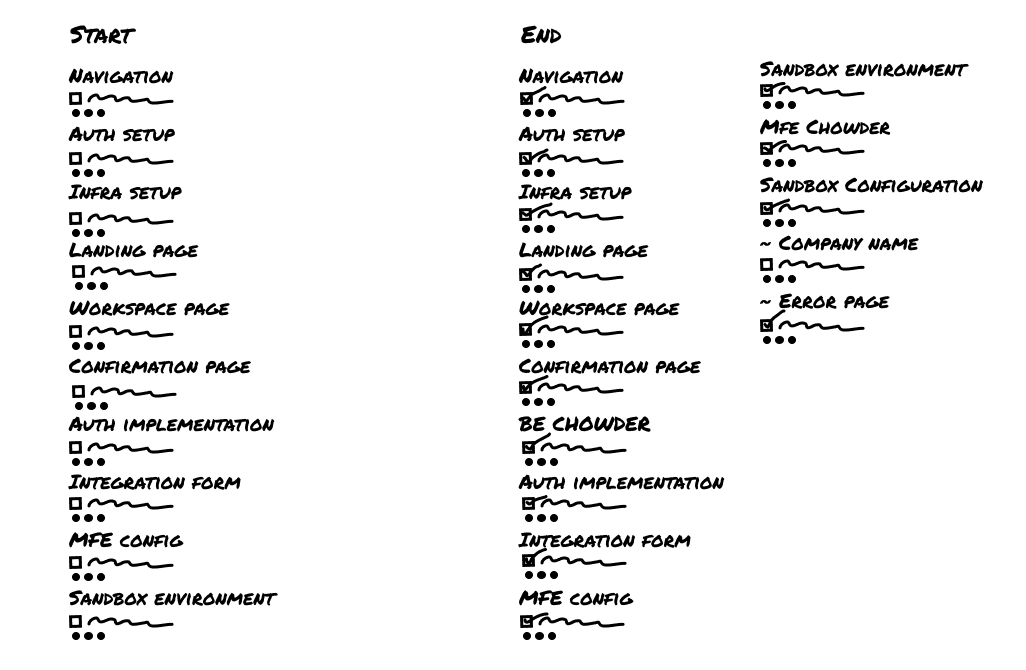 Start
Navigation
Auth setup
Infra setup
Landing page
Workspace page
Confirmation page
Auth implementation
Integration form
MFE config
Sandbox environment
End
Navigation
Auth setup
Infra setup
Landing page
Workspace page
Confirmation page
BE CHOWDER
Auth implementation
Integration form
MFE config
Sandbox environment
Mfe Chowder
Sandbox Configuration
~ Company name
~ Error page